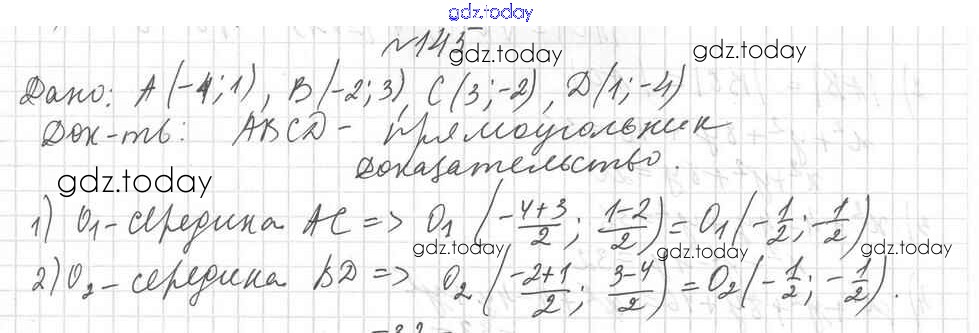 gdz.today
№145
gdz.today gdz.today
Дано: A(-4;1), B(-2;3), C(3;-2), D(1;-4)
Док-ть: ABCD - прямоугольник
Доказательство.
gdz.today
1) O₁ - середина AC => O₁ (\frac{-4+3}{2}; \frac{1-2}{2}) = O₁(-\frac{1}{2}; -\frac{1}{2})
gdz.today gdz.today gdz.today
2) O₂ - середина BD => O₂ (\frac{-2+1}{2}; \frac{3-4}{2}) = O₂(-\frac{1}{2}; -\frac{1}{2}).